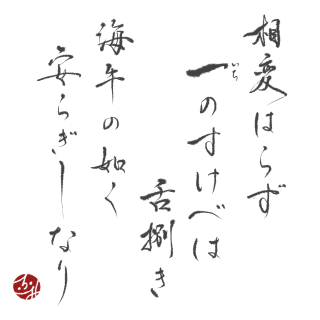 相変はらず
一のすけべは
いち
舌捌き
海牛の如く
安らぎしなり